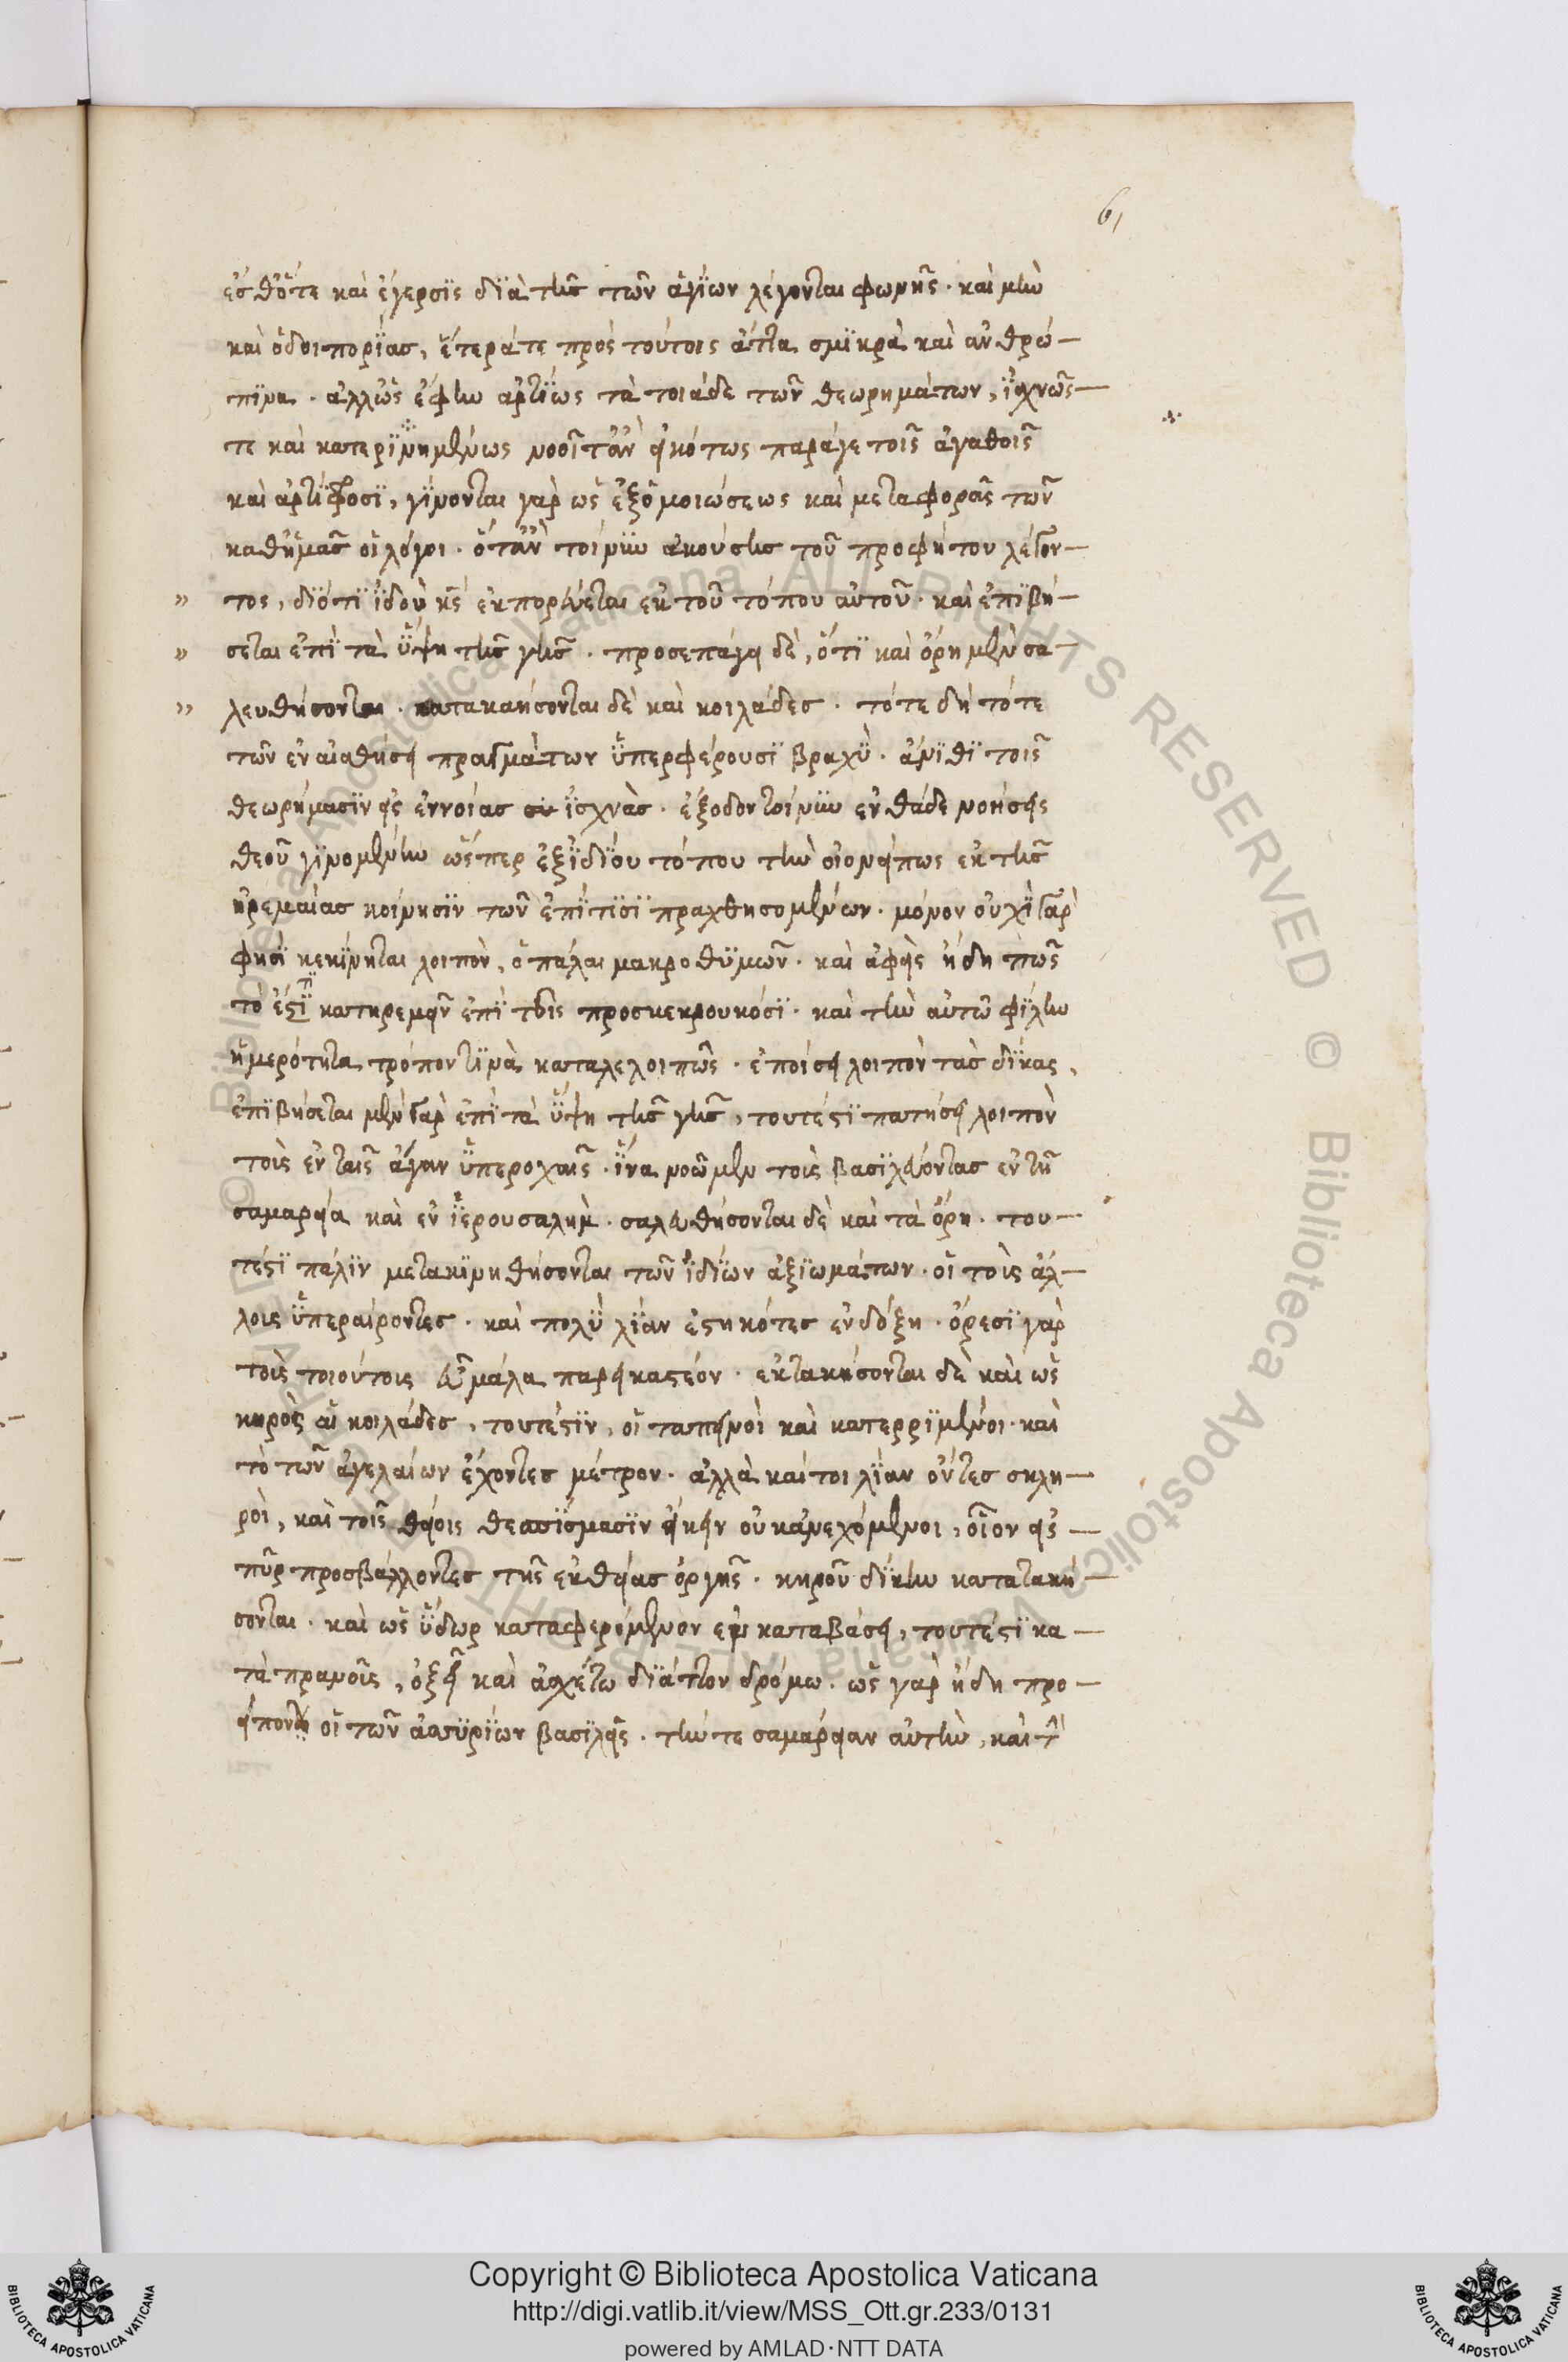 61
ἐσθότε καὶ ἐγερσϊς δϊὰ τῆς τῶν ἁγϊων λέγονται φωνῆς · καὶ μὴν
καὶ ὁδοιπορΐας, ἕτερά τε πρὸς τούτοις ἄττα σμϊκρὰ καὶ ἀνθρώ—
πϊνα · ἀλλ' ὡς ἔφην ἀρτΐως τὰ τοιάδε τῶν θεωρημάτων, ϊσχνῶς—
τε καὶ κατερϊνημένως νοοῖτ' ἂν εἰκότως παρά γε τοῖς ἀγαθοῖς
καὶ ἀρτΐφροσϊ, γΐνονται γὰρ ὡς ἐξ ὁμοιώσεως καὶ μεταφορᾶς τῶν
καθ' ἡμᾶς οἱ λόγοι · ὅταν τοίνϋν ἀκούσῃς τοῦ προφήτου λέγον—
» τος, δϊότϊ ϊδοὺ κς ἐκπορεύεται ἐκ τοῦ τόπου αὐτοῦ · καὶ ἐπϊβή—
» σεται ἐπϊ τὰ ὕψη τῆς γῆς · προσεπάγει δὲ, ὅτϊ καὶ ὄρη μὲν σα—
» λευθήσονται · κατακαήσονται δὲ καὶ κοιλάδες · τότε δὴ τότε
τῶν ἐν αἰσθήσει πραγμάτων ὑπερφέρουσϊ βραχϋ · ἄνϊθϊ τοῖς
θεωρήμασϊν εἰς ἐννοίας ϊσχνὰς · ἔξοδον τοίνϋν ἐνθάδε νοήσεις
θεοῦ γϊνομένην ὥσπερ ἐξ ϊδΐου τόπου τὴν οἱονείπως ἐκ τῆς
ἠρεμαίας κοίνησϊν τῶν ἐπΐ τϊσϊ πραχθησομένων · μόνον οὐχῒ γὰρ
φησῒ κεκΐνηται λοιπὸν, ὁ πάλαι μακροθϋμῶν · καὶ ἀφεὶς ἤδη πως
τὸ ἔτϊ κατηρεμεῖν ἐπῒ τοῖς προσκεκρουκόσϊ · καὶ τὴν αὐτῷ φΐλην
ἡμερότητα τρόπον τϊνὰ καταλελοιπὼς · ἐποίσει λοιπὸν τὰς δΐκας,
ἐπϊβήσεται μὲν γὰρ ἐπῒ τὰ ὕψη τῆς γῆς, τουτέστϊ πατήσει λοιπὸν
τοὺς ἐν ταῖς ἄγαν ὑπεροχαῖς · ἵνα νοῶμεν τοὺς βασϊλεύοντας ἐν τῇ
σαμαρείᾳ καὶ ἐν ϊερουσαλὴμ · σαλευθήσονται δὲ καὶ τὰ ὄρη · του—
τέστϊ πάλϊν μετακϊνηθήσονται τῶν ϊδΐων ἀξϊωμάτων · οἱ τοὺς ἄλ—
λους ὑπεραίροντες · καὶ πολῢ λΐαν ἑστηκότες ἐν δόξῃ · ὄρεσϊ γὰρ
τοὺς τοιούτους εὖ μάλα παρεικαστέον · ἐκτακήσονται δὲ καὶ ὡς
κηρὸς αἱ κοιλάδες, τουτέστϊν, οἱ ταπεινοὶ καὶ κατερρϊμένοι · καὶ
τὸ τῶν ἀγελαίων ἔχοντες μέτρον · ἀλλὰ καίτοι λΐαν ὄντες σκλη—
ροὶ, καὶ τοῖς θείοις θεσπΐσμασϊν εἴκειν οὐκ ἀνεχόμενοι, οἷον εἰς—
πῦρ προσβάλλοντες τῆς ἐκ θείας ὀργῆς · κηροῦ δΐκην κατατακή—
σονται · καὶ ὡς ὕδωρ καταφερόμενον ἐν καταβάσει, τουτέστϊ κα—
τὰ πρανοῦς, ὀξεῖ καὶ ἀσχέτῳ δϊάττον δρόμῳ · ὡς γὰρ ἤδη προ—
είπον οἱ τῶν ἀσσϋρΐων βασϊλεῖς · τήν τε σαμάρειαν αὐτὴν, καὶ τ
Copyright © Biblioteca Apostolica Vaticana
http://digi.vatlib.it/view/MSS_Ott.gr.233/0131
powered by AMLAD·NTT DATA
BIBLIOTECA APOSTOLICA VATICANA
BIBLIOTECA APOSTOLICA VATICANA